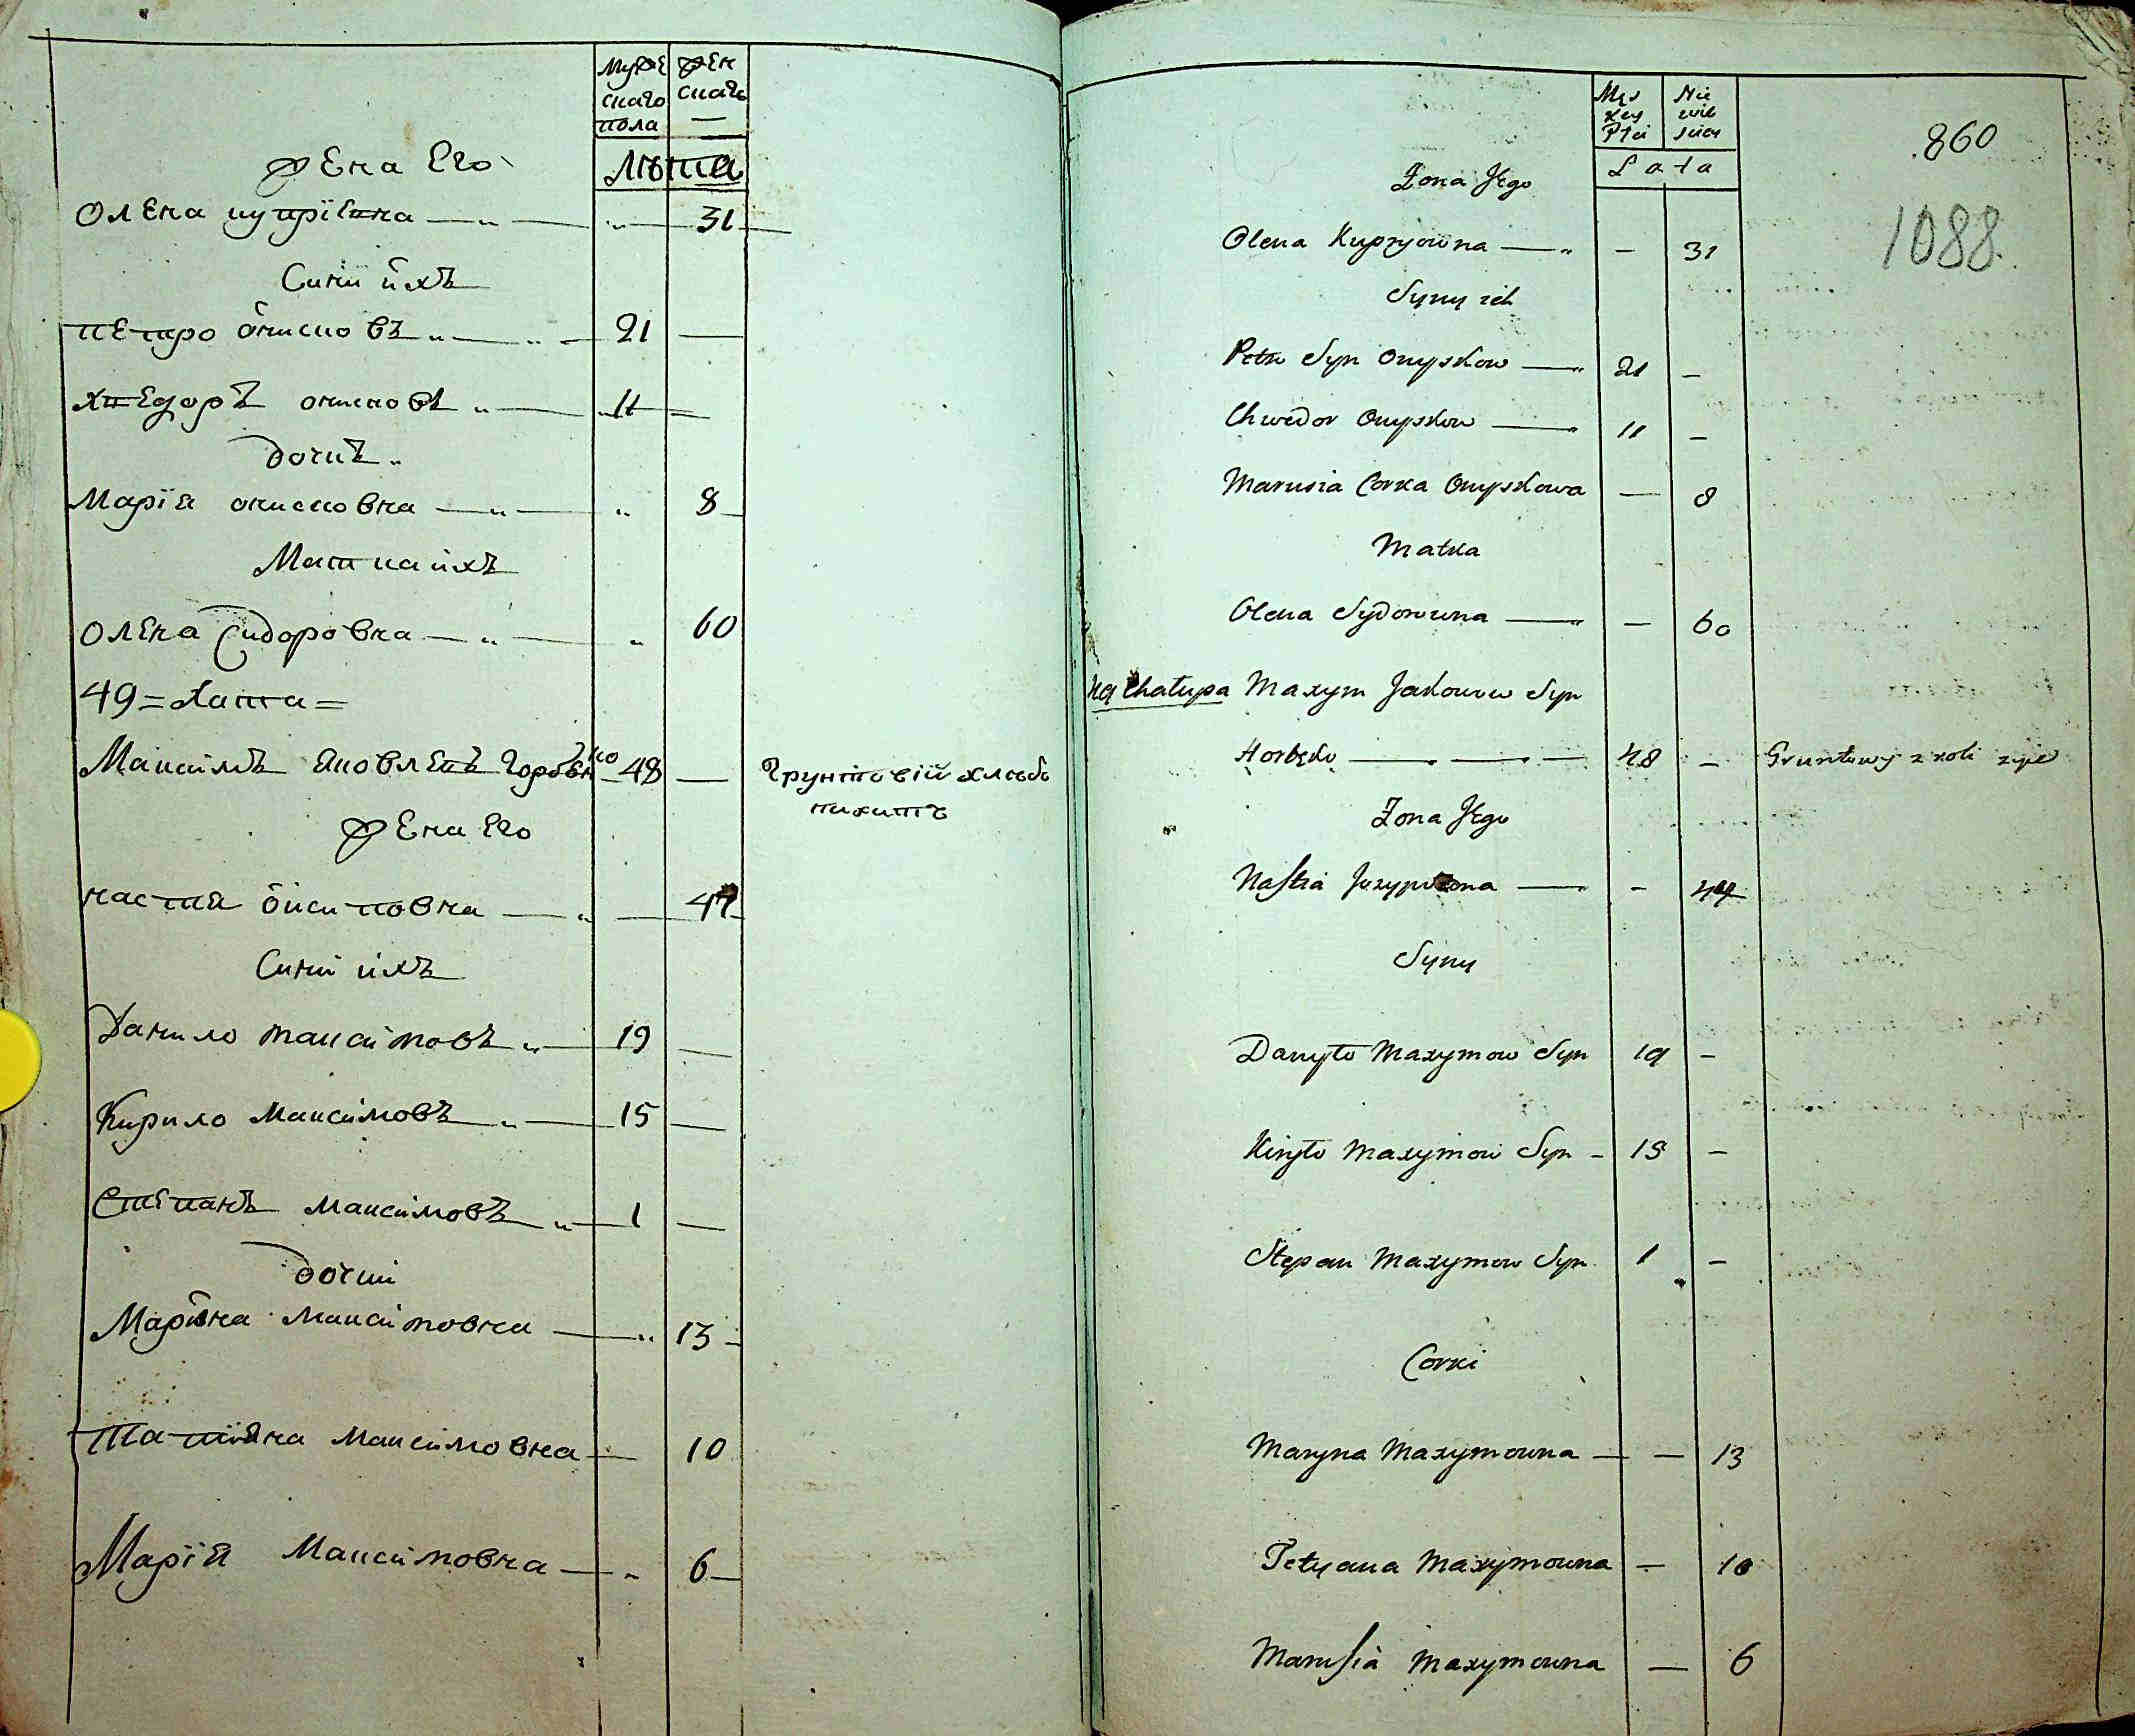 Мужескаго пола | женскаго
Лѣта
Жена Его
Олена купріевна — 31
Сини ихъ
Петро онисковъ 21 —
Хведоръ онисковъ 11 —
дочкъ
Марія онисковна 8
Матка ихъ
Олена Сидоровна 60
49 = Хата =
Максимъ Яковлевъ Горобко 48 — Грунтовій хлебъ
пахитъ
Жена Его
настя осиповна — 47
Сини ихъ
Данило максимовъ 19 —
Кирило Максимовъ 15 —
Степанъ Максимовъ 1 —
дочки
Марина Максимовна — 13
Татияна Максимовна — 10
Марія Максимовна — 6
Męskey Płci | Niewieściey
Lata
860
1088
Żona Jego
Olena Kupryowna — 31
Syny ich
Petro Syn Onyskow — 21 —
Chwedor Onyskow — 11 —
Marusia Corka Onyskowa — 8
Matka
Olena Sydorowna — 60
49 Chałupa Maxym Jakowow Syn
Horbko — 48 — Gruntowy z roli żyie
Żona Jego
Nastia Jozypowna — 47
Syny
Danyło Maxymow Syn 19 —
Kiryło Maxymow Syn 15 —
Stepan Maxymow Syn 1 —
Corki
Maryna Maxymowna — 13
Tetyana Maxymowna — 10
Marusia Maxymowna — 6